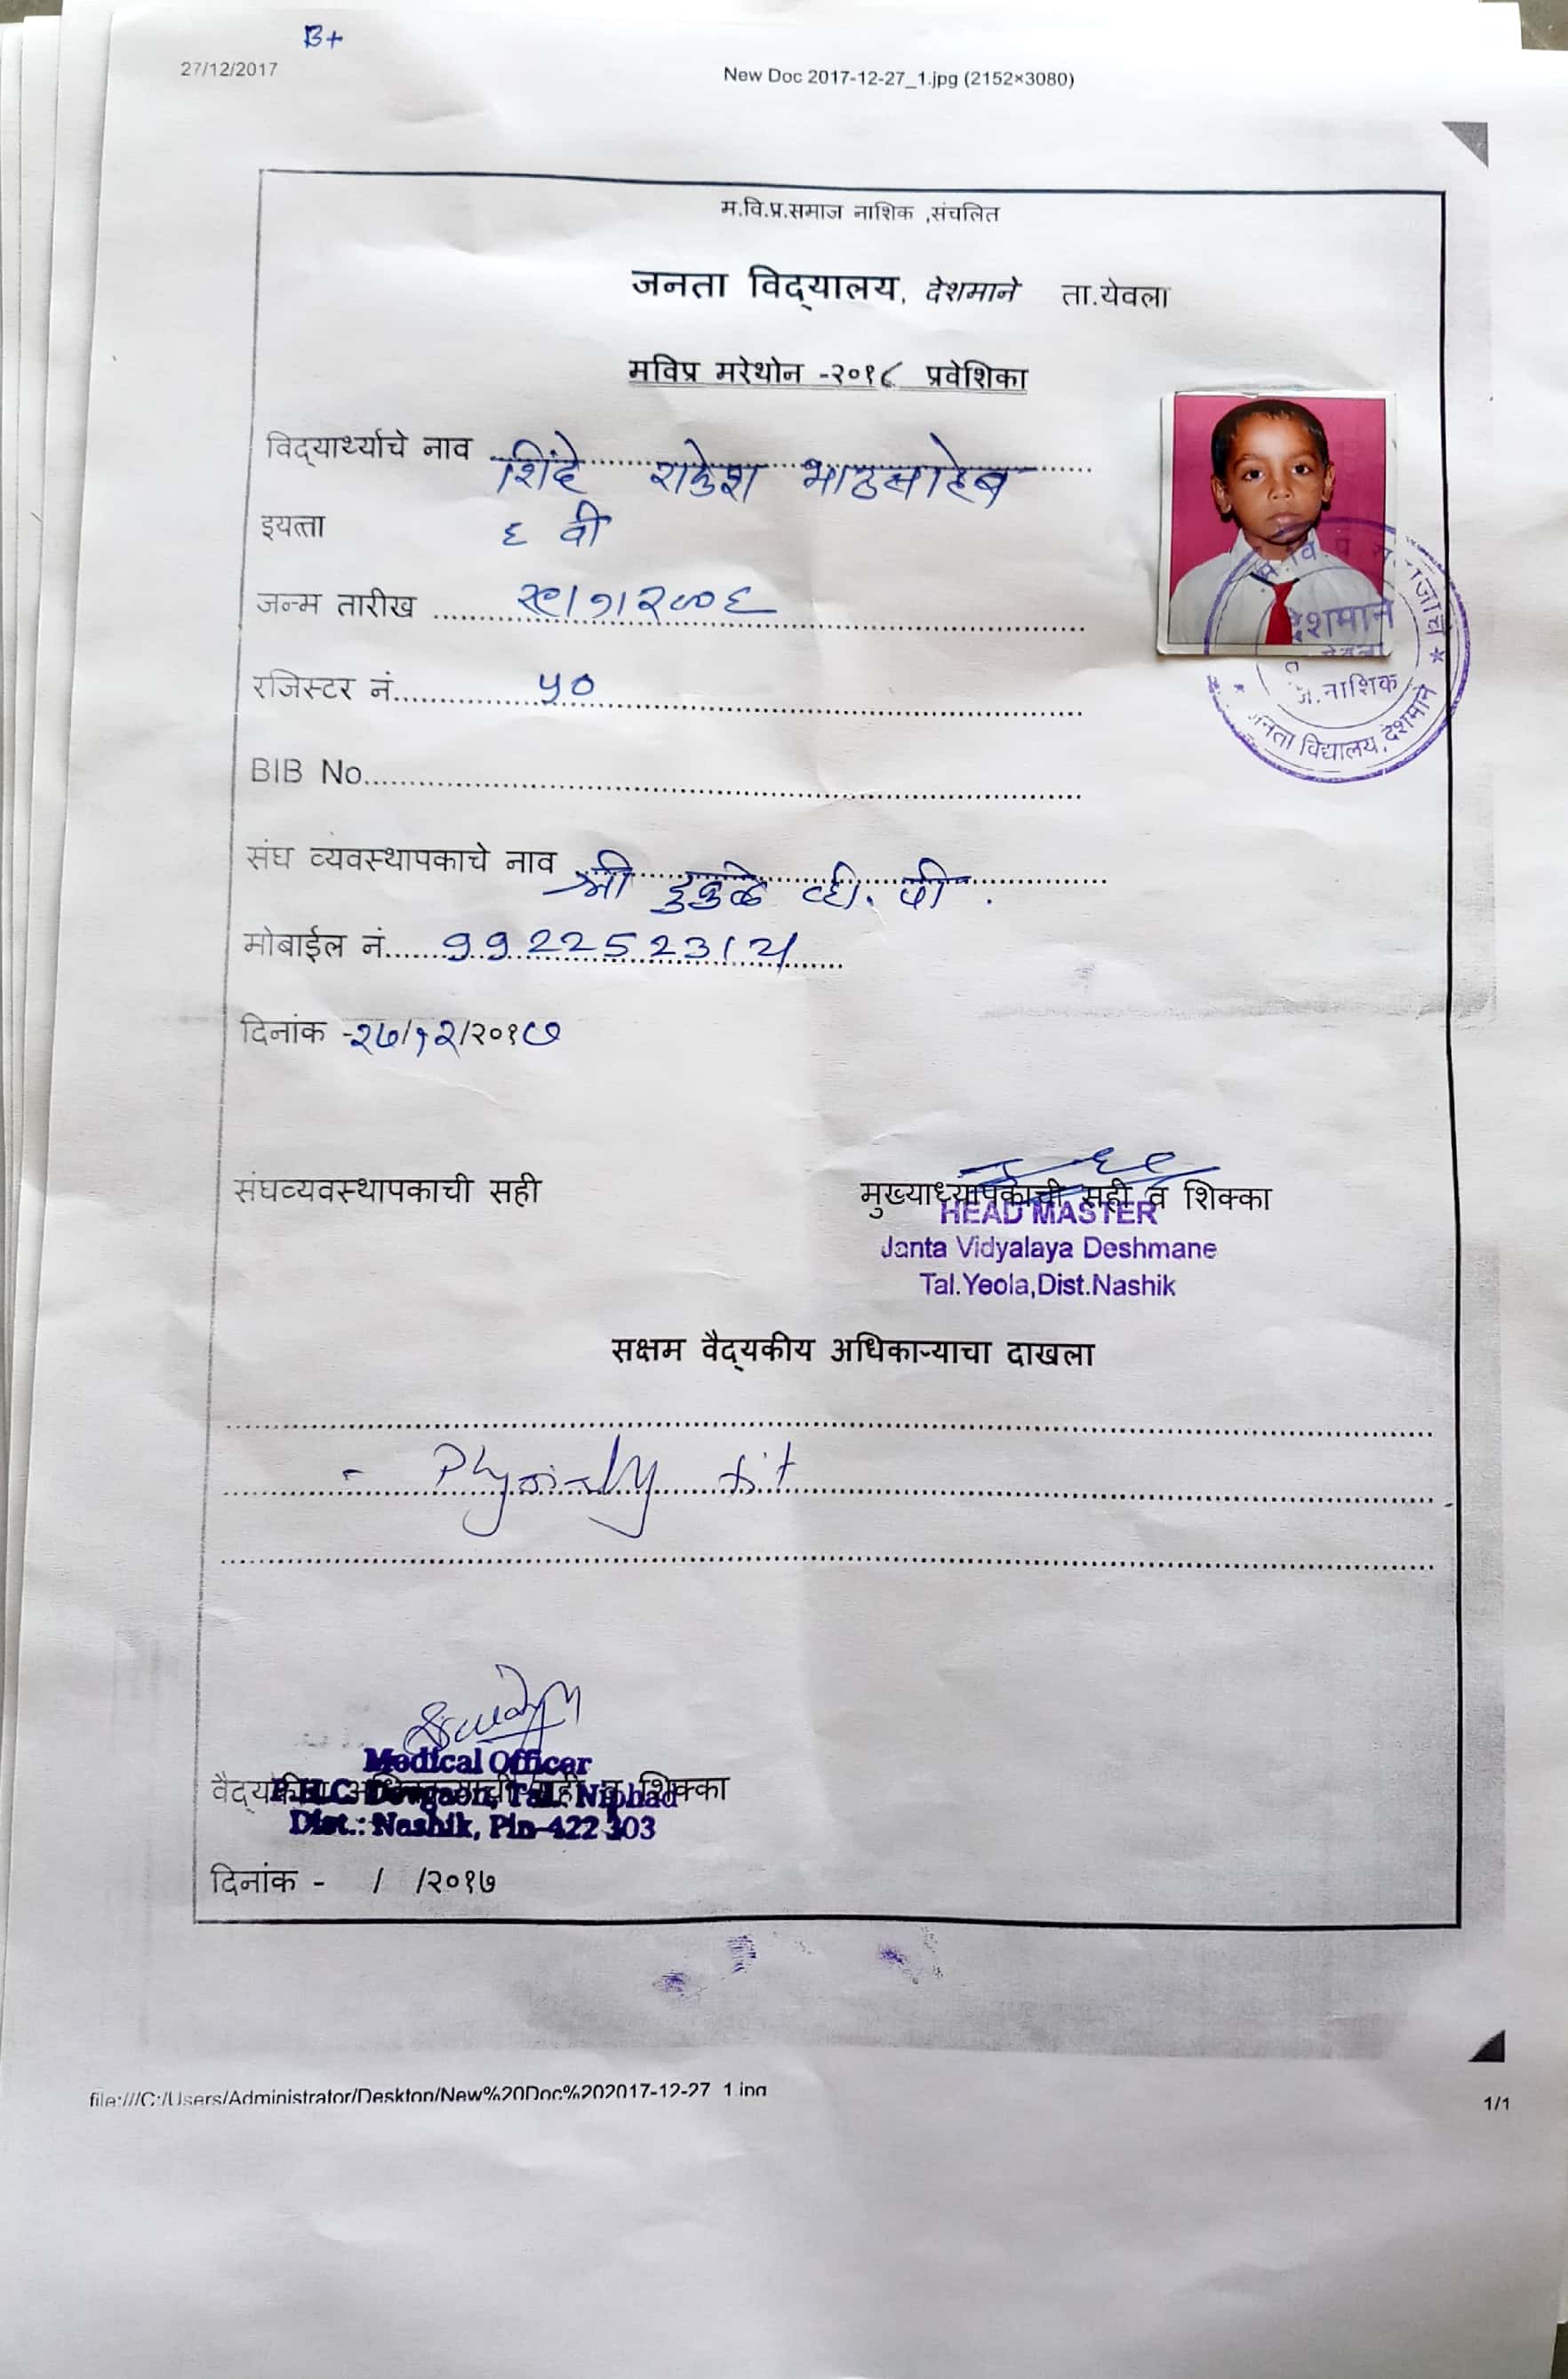 B+
27/12/2017
New Doc 2017-12-27_1.jpg (2152×3080)
म.वि.प्र.समाज नाशिक ,संचलित
जनता विद्यालय, देशमाने ता.येवला
मविप्र मरेथोन -२०१८ प्रवेशिका
विद्यार्थ्याचे नाव शिंदे राकेश भाऊसाहेब
इयत्ता ६ वी
जन्म तारीख २९/१/२००६
रजिस्टर नं. ५०
BIB No.
देशमाने
येवला
जि.नाशिक
जनता विद्यालय, देशमाने
संघ व्यवस्थापकाचे नाव श्री व्ही. पी.
मोबाईल नं. 992252312
दिनांक -२७/१२/२०१७
संघव्यवस्थापकाची सही
मुख्याध्यापकाची सही व शिक्का
HEAD MASTER
Janta Vidyalaya Deshmane
Tal.Yeola,Dist.Nashik
सक्षम वैद्यकीय अधिकाऱ्याचा दाखला
- Physically fit
Medical Officer
वैद्यकीय अधिकाऱ्याची सही व शिक्का
P.H.C. Devgaon, Tal. Niphad
Dist.: Nashik, Pin-422 303
दिनांक - / /२०१७
file:///C:/Users/Administrator/Desktop/New%20Doc%202017-12-27_1.jpg
1/1